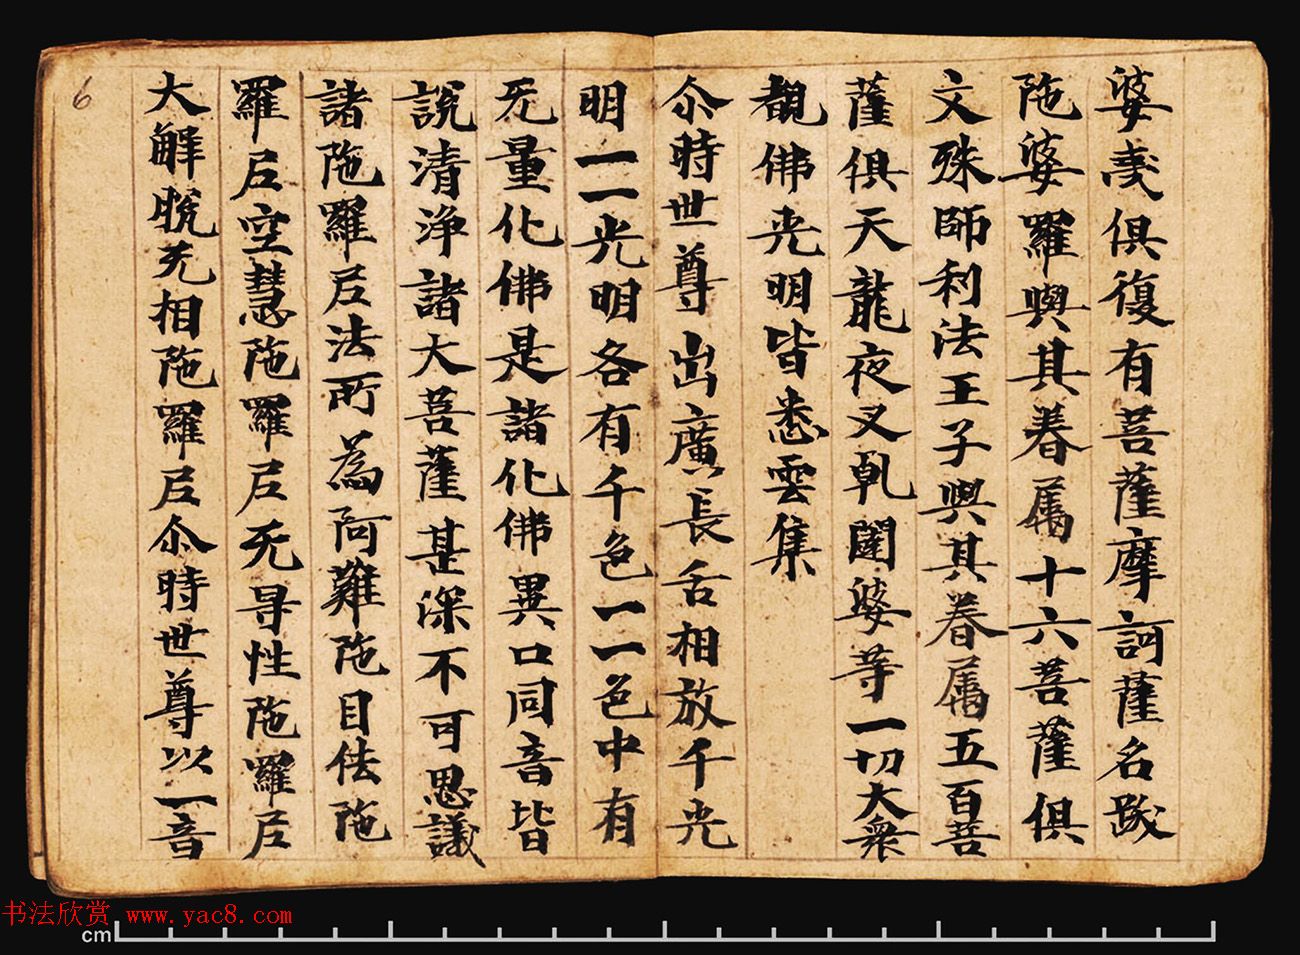 婆夷俱復有菩薩摩訶薩名跋
陁婆羅與其眷属十六菩薩俱
文殊師利法王子與其眷属五百菩
薩俱天龍夜叉乹闥婆等一切大衆
覩佛光明皆悉雲集
尒時世尊出廣長舌相放千光
明一一光明各有千色一一色中有
无量化佛是諸化佛異口同音皆
說清淨諸大菩薩甚深不可思議
諸陁羅尼法所為阿難陁目佉陁
羅尼空慧陁羅尼无㝵性陁羅尼
大解脫无相陁羅尼尒時世尊以一音
6
书法欣赏 www.yac8.com
cm